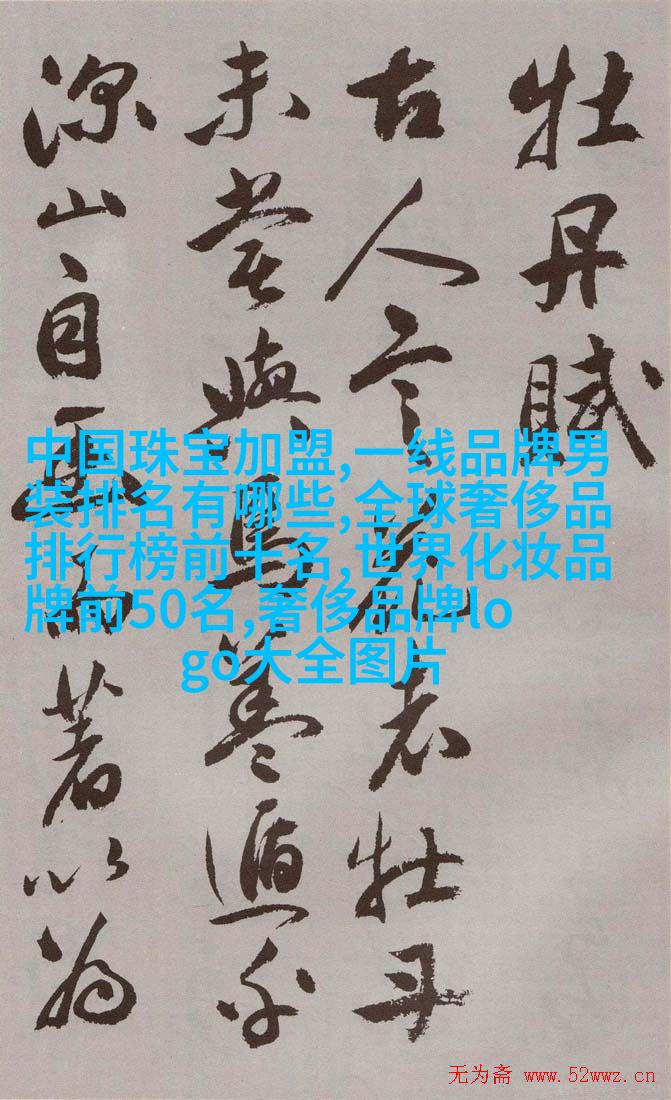 牡丹賦
古人言花者牡丹
未嘗與焉蓋遁乎
深山自幽而著以為
中国珠宝加盟,一线品牌男
装排名有哪些,全球奢侈品
排行榜前十名,世界化妆品
牌前50名,奢侈品牌lo
go大全图片
无为斋 www.52wwz.cn